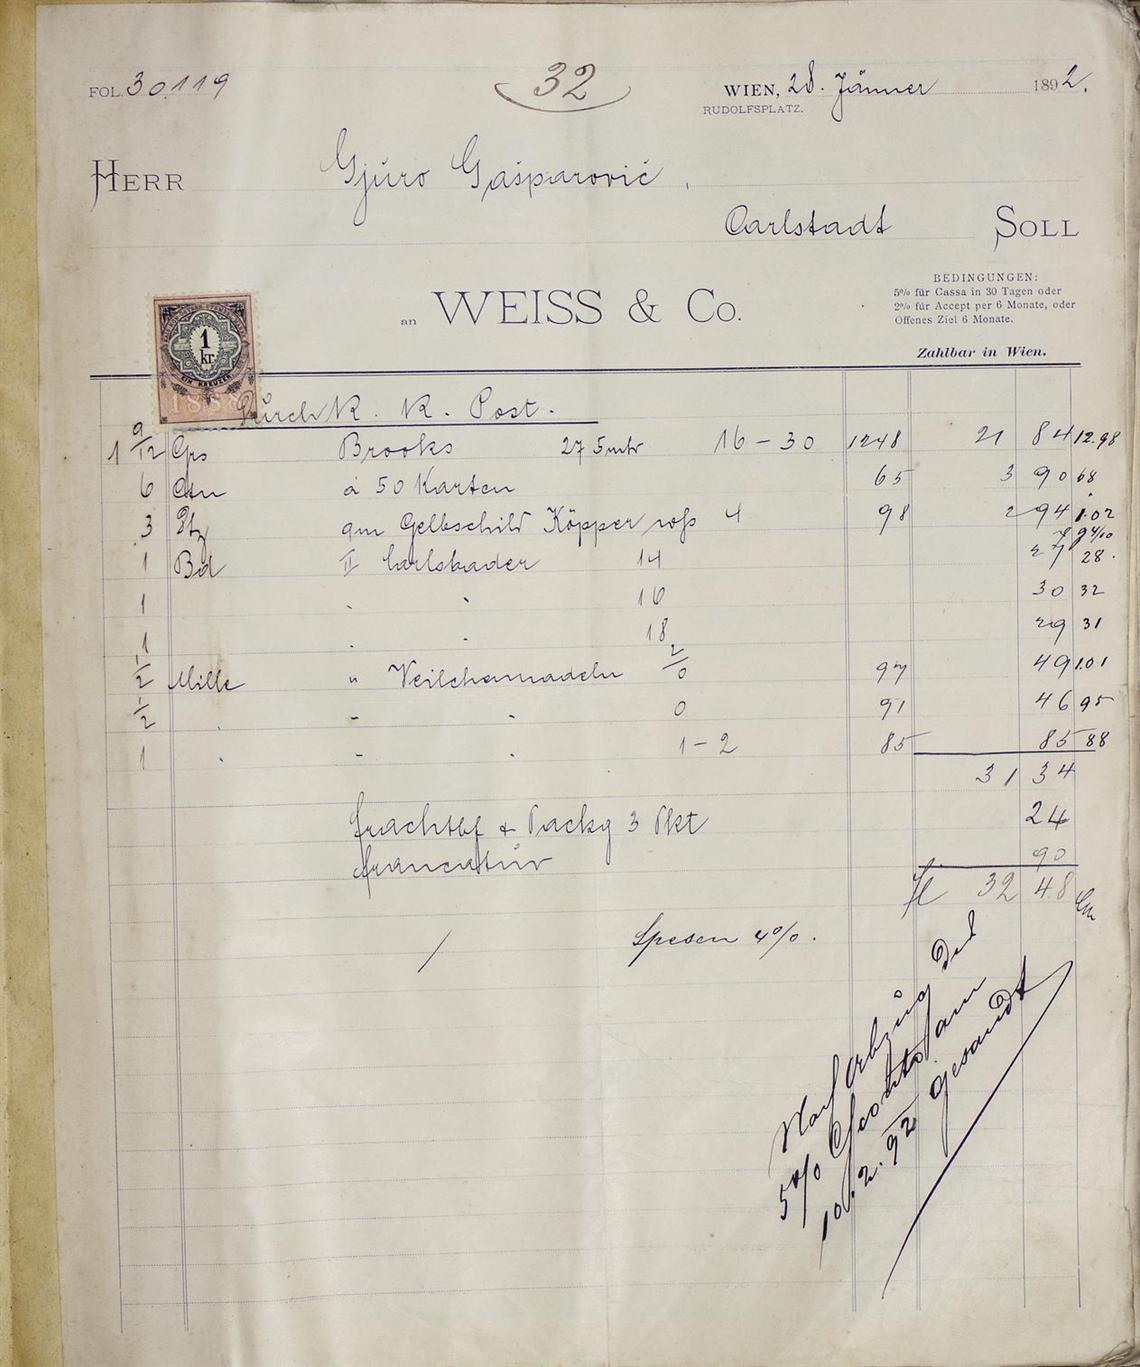 FOL. 30.119
32
WIEN, 28. Jänner 1892.
RUDOLFSPLATZ.
HERR Gjuro Gašparović,
Carlstadt SOLL
BEDINGUNGEN:
5% für Cassa in 30 Tagen oder
2% für Accept per 6 Monate, oder
Offenes Ziel 6 Monate.
an WEISS & Co.
Zahlbar in Wien.
1 kr.
EIN KREUZER
1888
Durch K. K. Post.
1 9/12 Grs Brooks 275mtr 16-30 1248 21 84 12.98
6 Ctn à 50 Karten 65 3 90 68
3 Stz qm Gelbschild Köpper roß 4 98 2 94 1.02
94/10
1 Bd II Carlsbader 14 27 28.
1 " " 16 30 32
1 " " 18 29 31
1/2 Mille " Veilchennadeln 2/0 97 49 1.01
1/2 " " " 0 91 46 95
1 " " " 1-2 85 85 88
31 34
Frachtbf & Packg 3 Pkt 24
Francatur 90
fl 32 48
Spesen 4%.
Nach Abzug des
5% Sconto am
10.2.92 gesandt